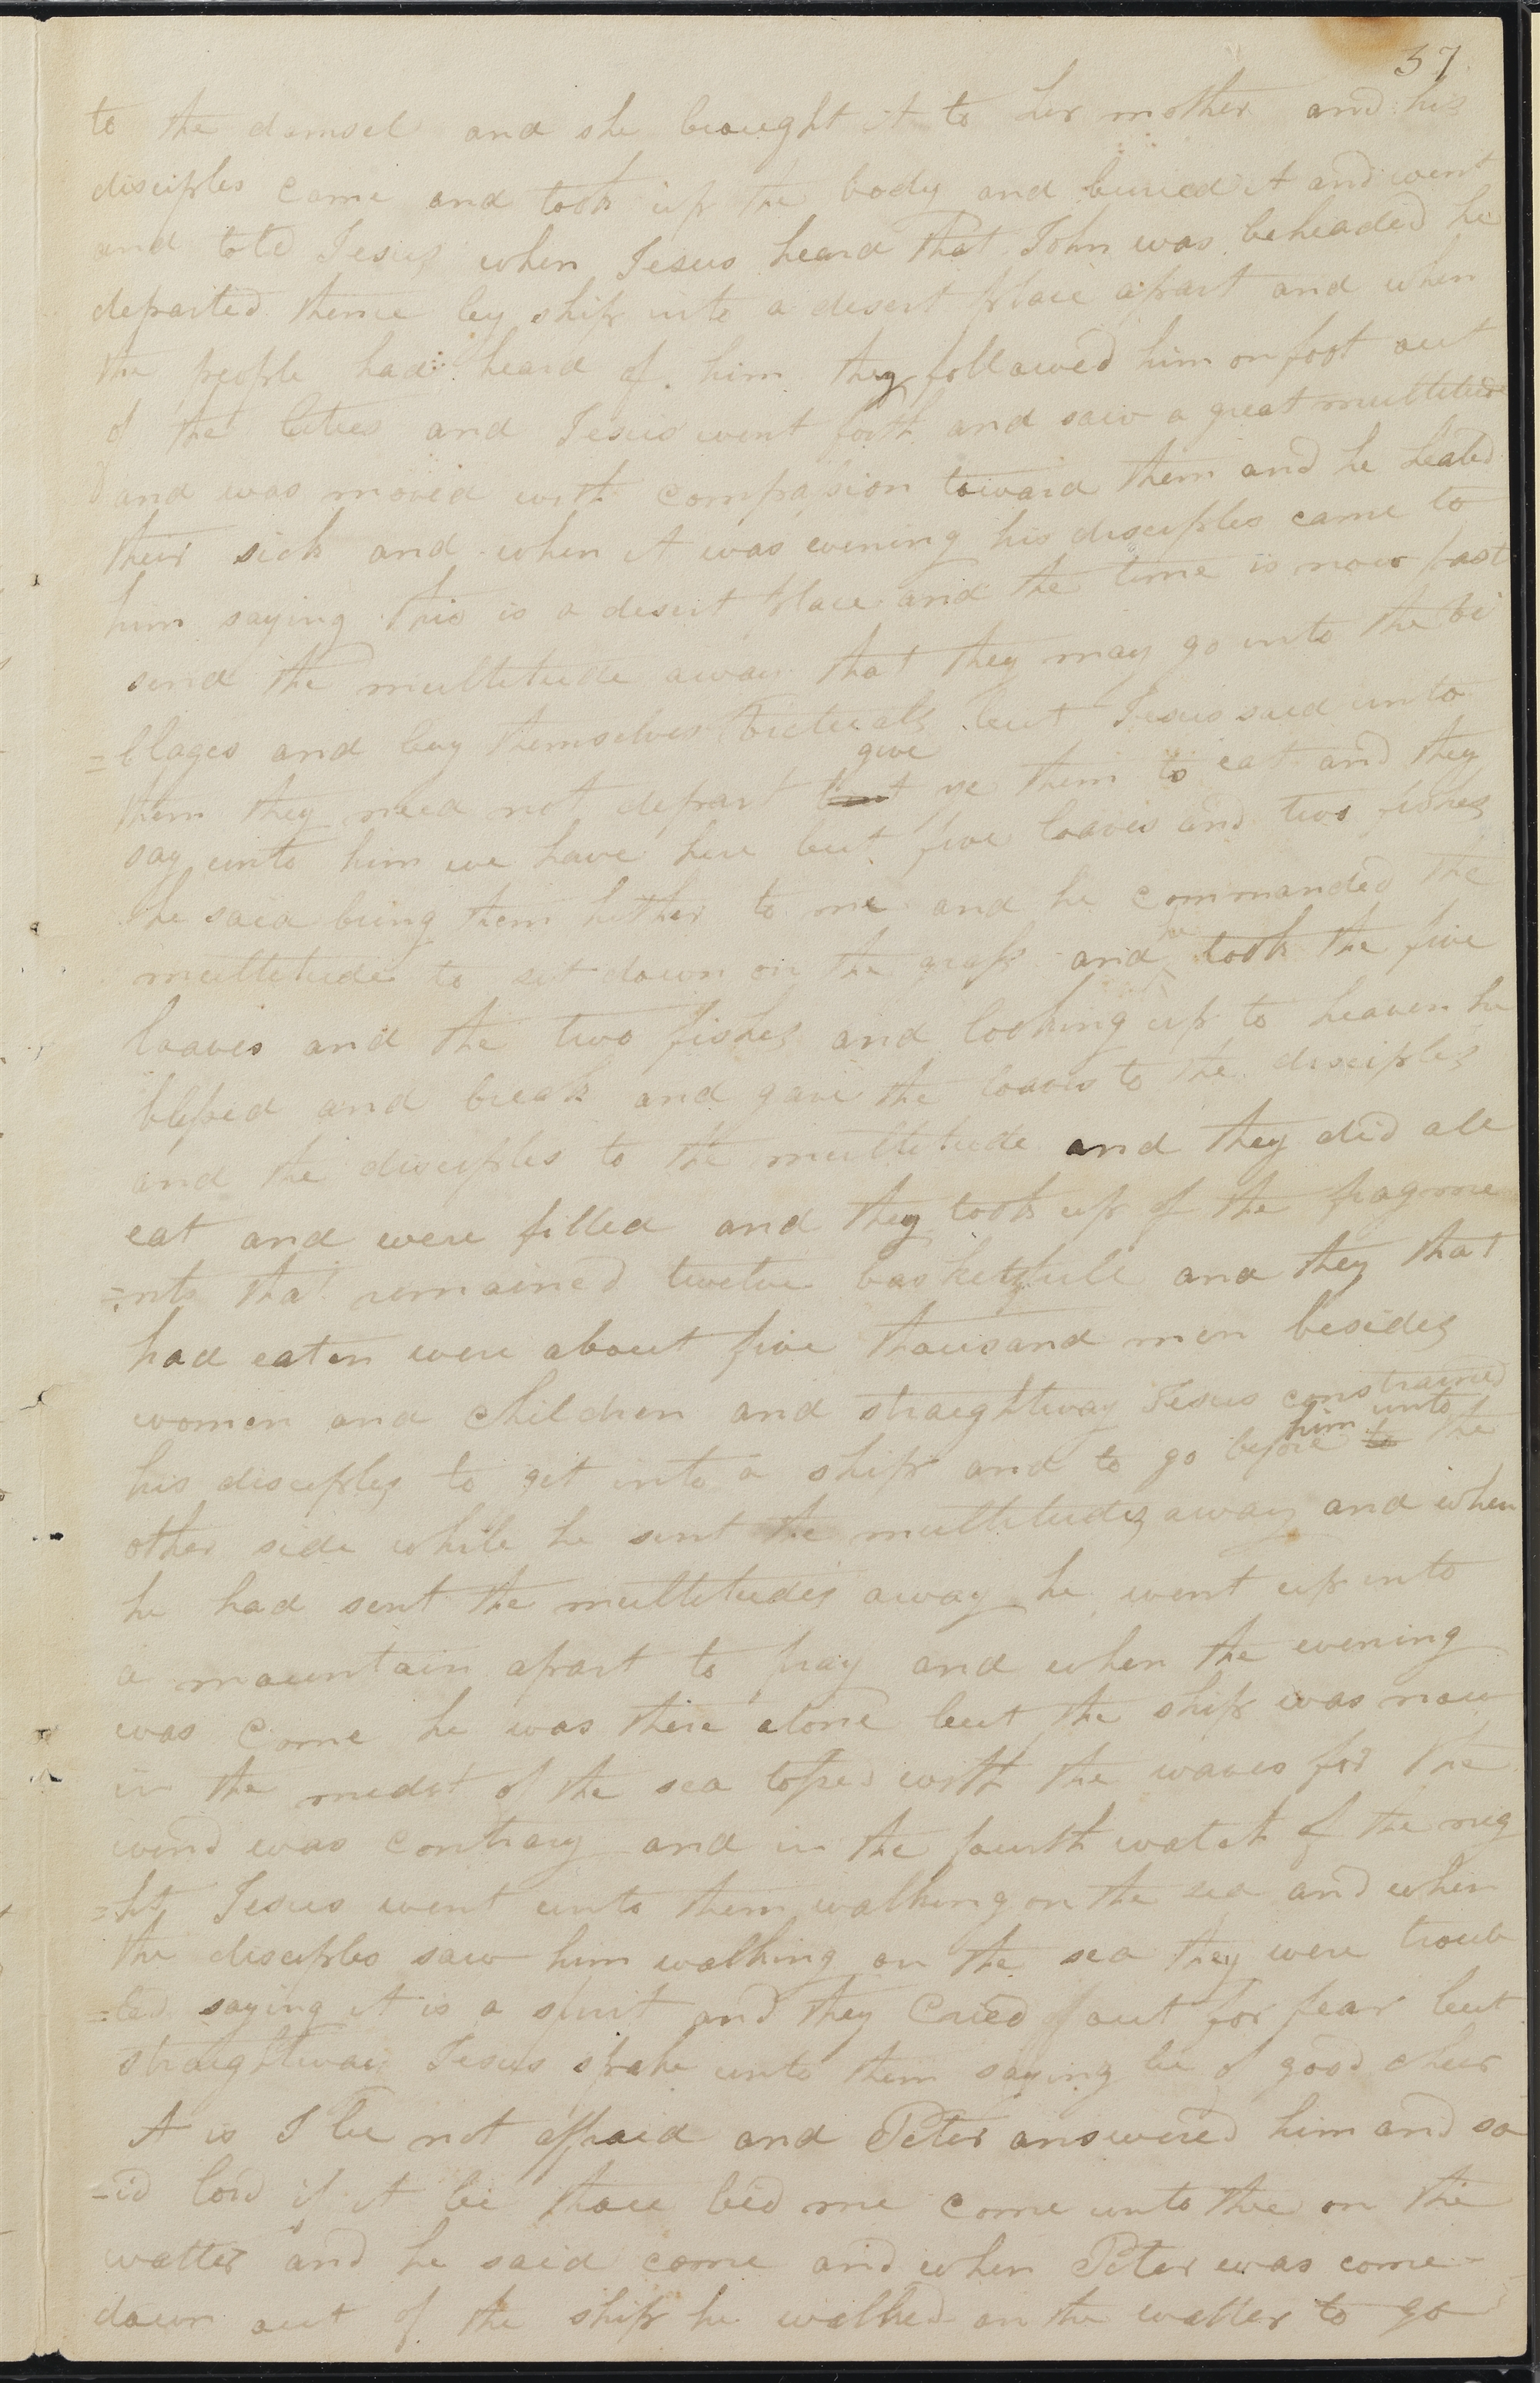 37
to the damsel and she brought it to her mother and his
disciples came and took up the body and buried it and went
and told Jesus when Jesus heard that John was beheaded he
departed thence by ship into a desert place apart and when
the people had heard of him they followed him on foot out
of the Cities and Jesus went forth and saw a great multitude
and was moved with compassion toward them and he healed
their sick and when it was evening his disciples came to
him saying this is a desert place and the time is now past
send the multitude away that they may go into the vi
=llages and buy themselves victuals but Jesus said unto
give
them they need not depart but ye them to eat and they
say unto him we have here but five loaves and two fishes
he said bring them hither to me and he commanded the
he
multitude to set down on the grass and took the five
loaves and the two fishes and looking up to heaven he
blessed and break and gave the loaves to the disciples
and the disciples to the multitude and they did all
eat and were filled and they took up of the fragme
=nts that remained twelve baskets full and they that
had eaten were about five thousand men besides
women and children and straightway Jesus constrained
him unto
his disciples to get into a ship and to go before to the
other side while he sent the multitudes away and when
he had sent the multitudes away he went up into
a mountain apart to pray and when the evening
was come he was there alone but the ship was now
in the midst of the sea tossed with the waves for the
wind was contrary and in the fourth watch of the nig
=ht Jesus went unto them walking on the sea and when
the disciples saw him walking on the sea they were troub
=led saying it is a spirit and they Cried out for fear but
straightway Jesus spake unto them saying be of good cheer
it is I be not affraid and Peter answered him and sa
=id lord if it be thou bid me come unto thee on the
watter and he said come and when Peter was come
down out of the ship he walked on the watter to go